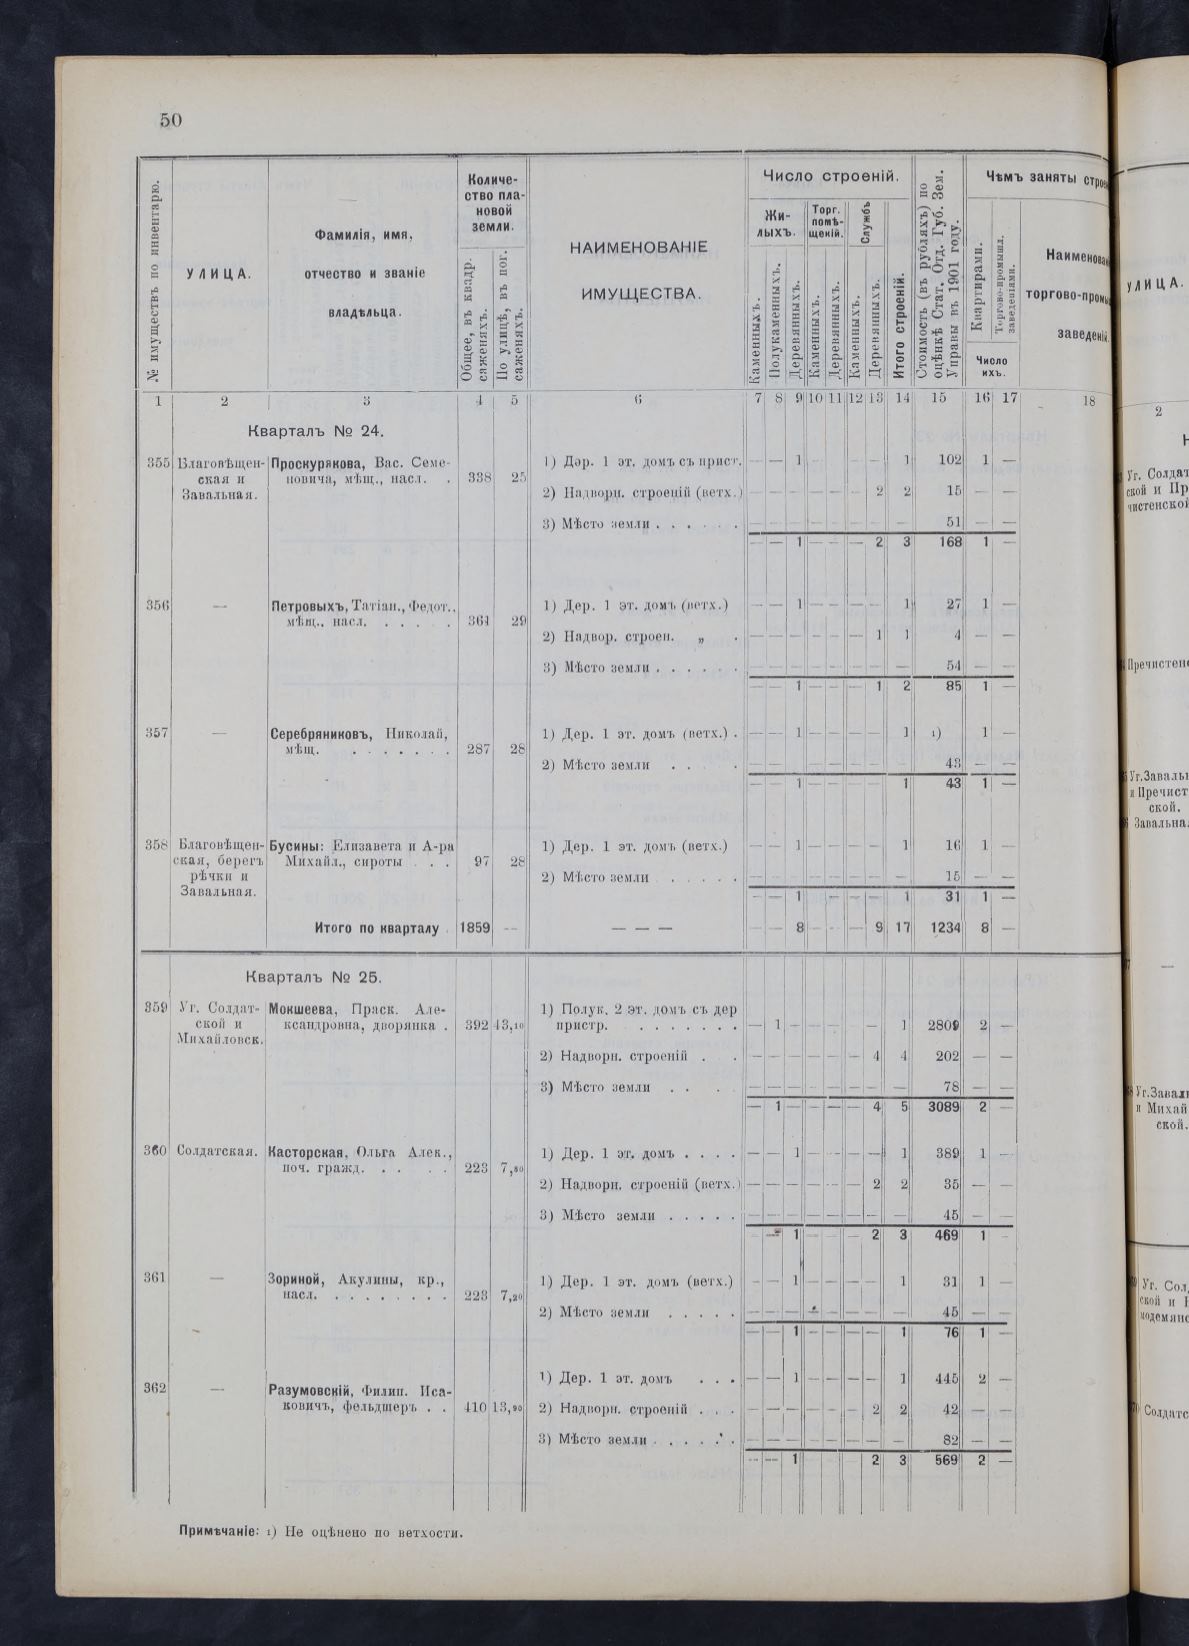 50
№ имуществъ по инвентарю.
УЛИЦА.
Фамилія, имя,
отчество и званіе
владѣльца.
Количе-
ство пла-
новой
земли.
Общее, въ квадр. саженяхъ.
По улицѣ, въ пог. саженяхъ.
НАИМЕНОВАНІЕ
ИМУЩЕСТВА.
Число строеній.
Жи-
лыхъ.
Торг.
помѣ-
щеній.
Службъ
Каменныхъ.
Полукаменныхъ.
Деревянныхъ.
Каменныхъ.
Деревянныхъ.
Каменныхъ.
Деревянныхъ.
Итого строеній.
Стоимость (въ рубляхъ) по
оцѣнкѣ Стат. Отд. Губ. Зем.
Управы въ 1901 году.
Чѣмъ заняты строе
Квартирами.
Торгово-промышл.
заведеніями.
Число
ихъ.
Наименован
торгово-промы
заведеній.
1 2 3 4 5 6 7 8 9 10 11 12 13 14 15 16 17 18
Кварталъ № 24.
355 Благовѣщен- Проскурякова, Вас. Семе- 1) Дер. 1 эт. домъ съ прист. — — 1 — — — — 1 102 1 —
ская и новича, мѣщ., насл. . 338 25
Завальная. 2) Надворн. строеній (ветх.) — — — — — — 2 2 15 — —
3) Мѣсто земли . . . . . . — — — — — — — — 51 — —
— — 1 — — — 2 3 168 1 —
356 — Петровыхъ, Татіан., Федот., 1) Дер. 1 эт. домъ (ветх.) — — 1 — — — — 1 27 1 —
мѣщ., насл. . . . . . 361 29
2) Надвор. строен. „ . — — — — — — 1 1 4 — —
3) Мѣсто земли . . . . . . — — — — — — — — 54 — —
— — 1 — — — 1 2 85 1 —
357 — Серебряниковъ, Николай, 1) Дер. 1 эт. домъ (ветх.) . — — 1 — — — — 1 1) 1 —
мѣщ. . . . . . . . 287 28
2) Мѣсто земли . . . . — — — — — — — — 43 — —
— — 1 — — — — 1 43 1 —
358 Благовѣщен- Бусины: Елизавета и А-ра 1) Дер. 1 эт. домъ (ветх.) — — 1 — — — — 1 16 1 —
ская, берегъ Михайл., сироты . . . 97 28
рѣчки и 2) Мѣсто земли . . . . . — — — — — — — — 15 — —
Завальная. — — 1 — — — — 1 31 1 —
Итого по кварталу . 1859 — — — — — — 8 — — — 9 17 1234 8 —
Кварталъ № 25.
359 Уг. Солдат- Мокшеева, Праск. Але- 1) Полук. 2 эт. домъ съ дер
ской и ксандровна, дворянка . 392 43,10 пристр. . . . . . . . — 1 — — — — — 1 2809 2 —
Михайловск.
2) Надворн. строеній . . — — — — — — 4 4 202 — —
3) Мѣсто земли . . . . — — — — — — — — 78 — —
— 1 — — — — 4 5 3089 2 —
360 Солдатская. Касторская, Ольга Алек., 1) Дер. 1 эт. домъ . . . . — — 1 — — — — 1 389 1 —
поч. гражд. . . . . 223 7,80
2) Надворн. строеній (ветх.) — — — — — — 2 2 35 — —
3) Мѣсто земли . . . . . — — — — — — — — 45 — —
— — 1 — — — 2 3 469 1 -
361 — Зориной, Акулины, кр., 1) Дер. 1 эт. домъ (ветх.) — — 1 — — — — 1 31 1 —
насл. . . . . . . . . 223 7,20
2) Мѣсто земли . . . . . — — — — — — — — 45 — —
— — 1 — — — — 1 76 1 —
362 — Разумовскій, Филип. Иса- 1) Дер. 1 эт. домъ . . . — — 1 — — — — 1 445 2 —
ковичъ, фельдшеръ . . 410 13,90 2) Надворн. строеній . . . — — — — — — 2 2 42 — —
3) Мѣсто земли . . . . . . — — — — — — — — 82 — —
— — 1 — — — 2 3 569 2 —
Примѣчаніе: 1) Не оцѣнено по ветхости.
УЛИЦА.
2
Уг. Солдат
ской и Пр
чистенской
Пречистен
Уг.Заваль
и Пречист
ской.
Завальна
—
Уг.Завал
и Михай
ской.
Уг. Сол
ской и
модемьян
Солдатс